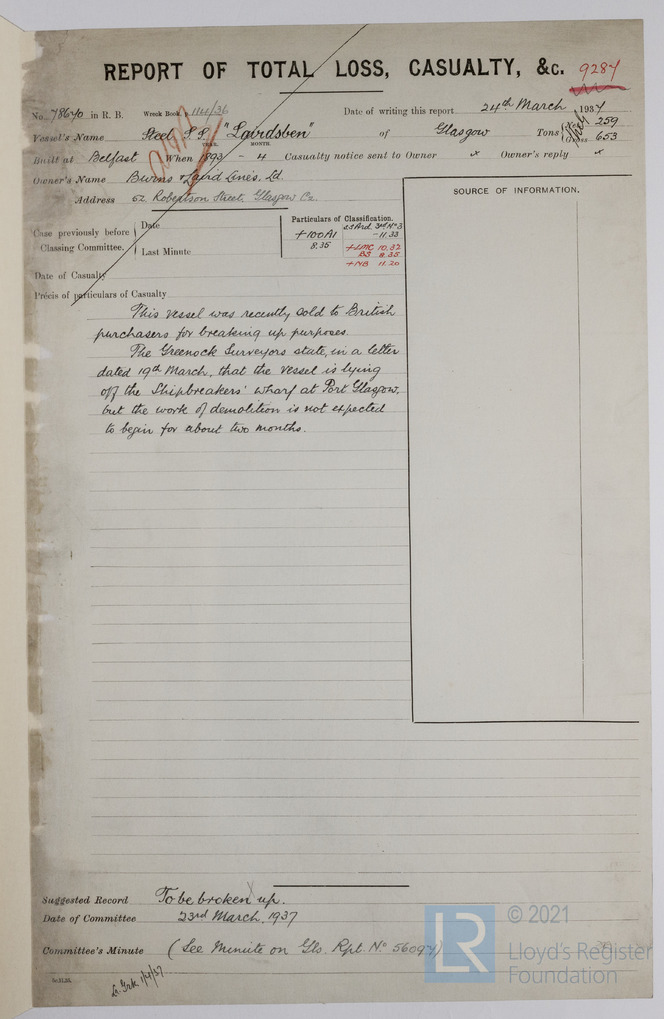 REPORT OF TOTAL LOSS, CASUALTY, &c. 9287
No. 78640 in R. B. Wreck Book, p. 1141/36 Date of writing this report 24th March, 1937
Vessel's Name Steel S.S. "Lairdsben" of Glasgow Tons { Net 259
Gross 653
YEAR. MONTH.
Built at Belfast When 1893 - 4 Casualty notice sent to Owner x Owner's reply x
Owner's Name Burns & Laird Lines, Ld.
Address 52 Robertson Street, Glasgow C2.
SOURCE OF INFORMATION.
Case previously before Classing Committee. { Date
Last Minute
Particulars of Classification.
+100A1
8.35
SS Ard. 3rd No 3
- 11.33
+LMC 10.32
BS 8.35
+NB 11.20
Date of Casualty
Précis of particulars of Casualty
This vessel was recently sold to British
purchasers for breaking up purposes.
The Greenock Surveyors state, in a letter
dated 19th March, that the vessel is lying
off the Shipbreakers' wharf at Port Glasgow,
but the work of demolition is not expected
to begin for about two months.
Suggested Record To be broken up.
Date of Committee 23rd March, 1937
Committee's Minute (See Minute on Gls. Rpt. No 56094)
1/4/37
© 2021
LR
Lloyd's Register
Foundation